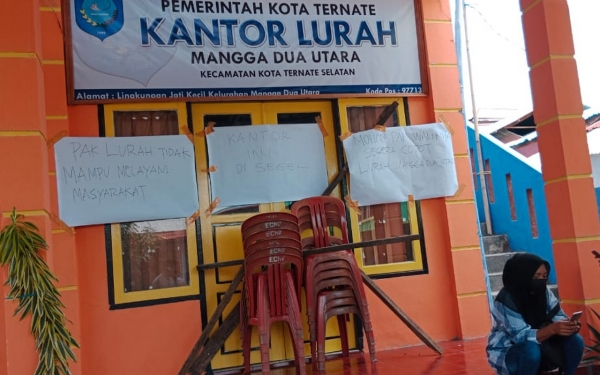 PEMERINTAH KOTA TERNATE
KANTOR LURAH
MANGGA DUA UTARA
KECAMATAN KOTA TERNATE SELATAN
Alamat : Lingkungan Jati Kecil Kelurahan Mangga Dua Utara
Kode Pos : 97713
PAK LURAH TIDAK
MAMPU MELAYANI
MASYARAKAT
KANTOR
INI
DI SEGEL
PAK WALIKOTA
SEGERA COPOT
LURAH MANGGA DUA
ECNF
ECNF
ECNF